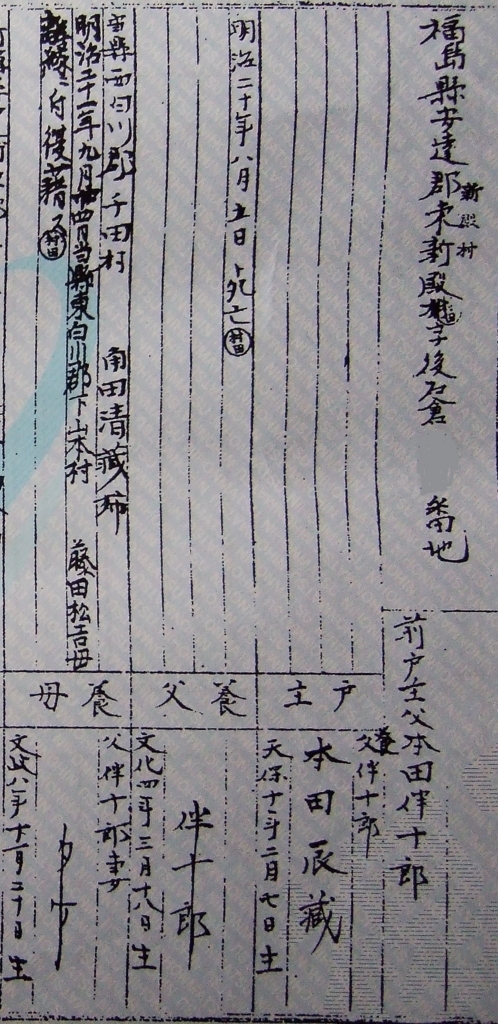 福島縣安達郡東新殿村字後石倉 番地
新殿村
前戸主父本田伴十郎
養
戸主
父伴十郎
本田辰藏
天保十二年二月七日生
明治二十年八月五日死亡
村田
養父
伴十郎
文化四年三月十八日生
当縣西白川郡千田村 角田清藏姉
明治二十一年九月廿四日当縣東白川郡下山本村 藤田松吉母
離縁ニ付復籍ス
村田
養母
父伴十郎妻
タケ
文政八年十一月二十日生